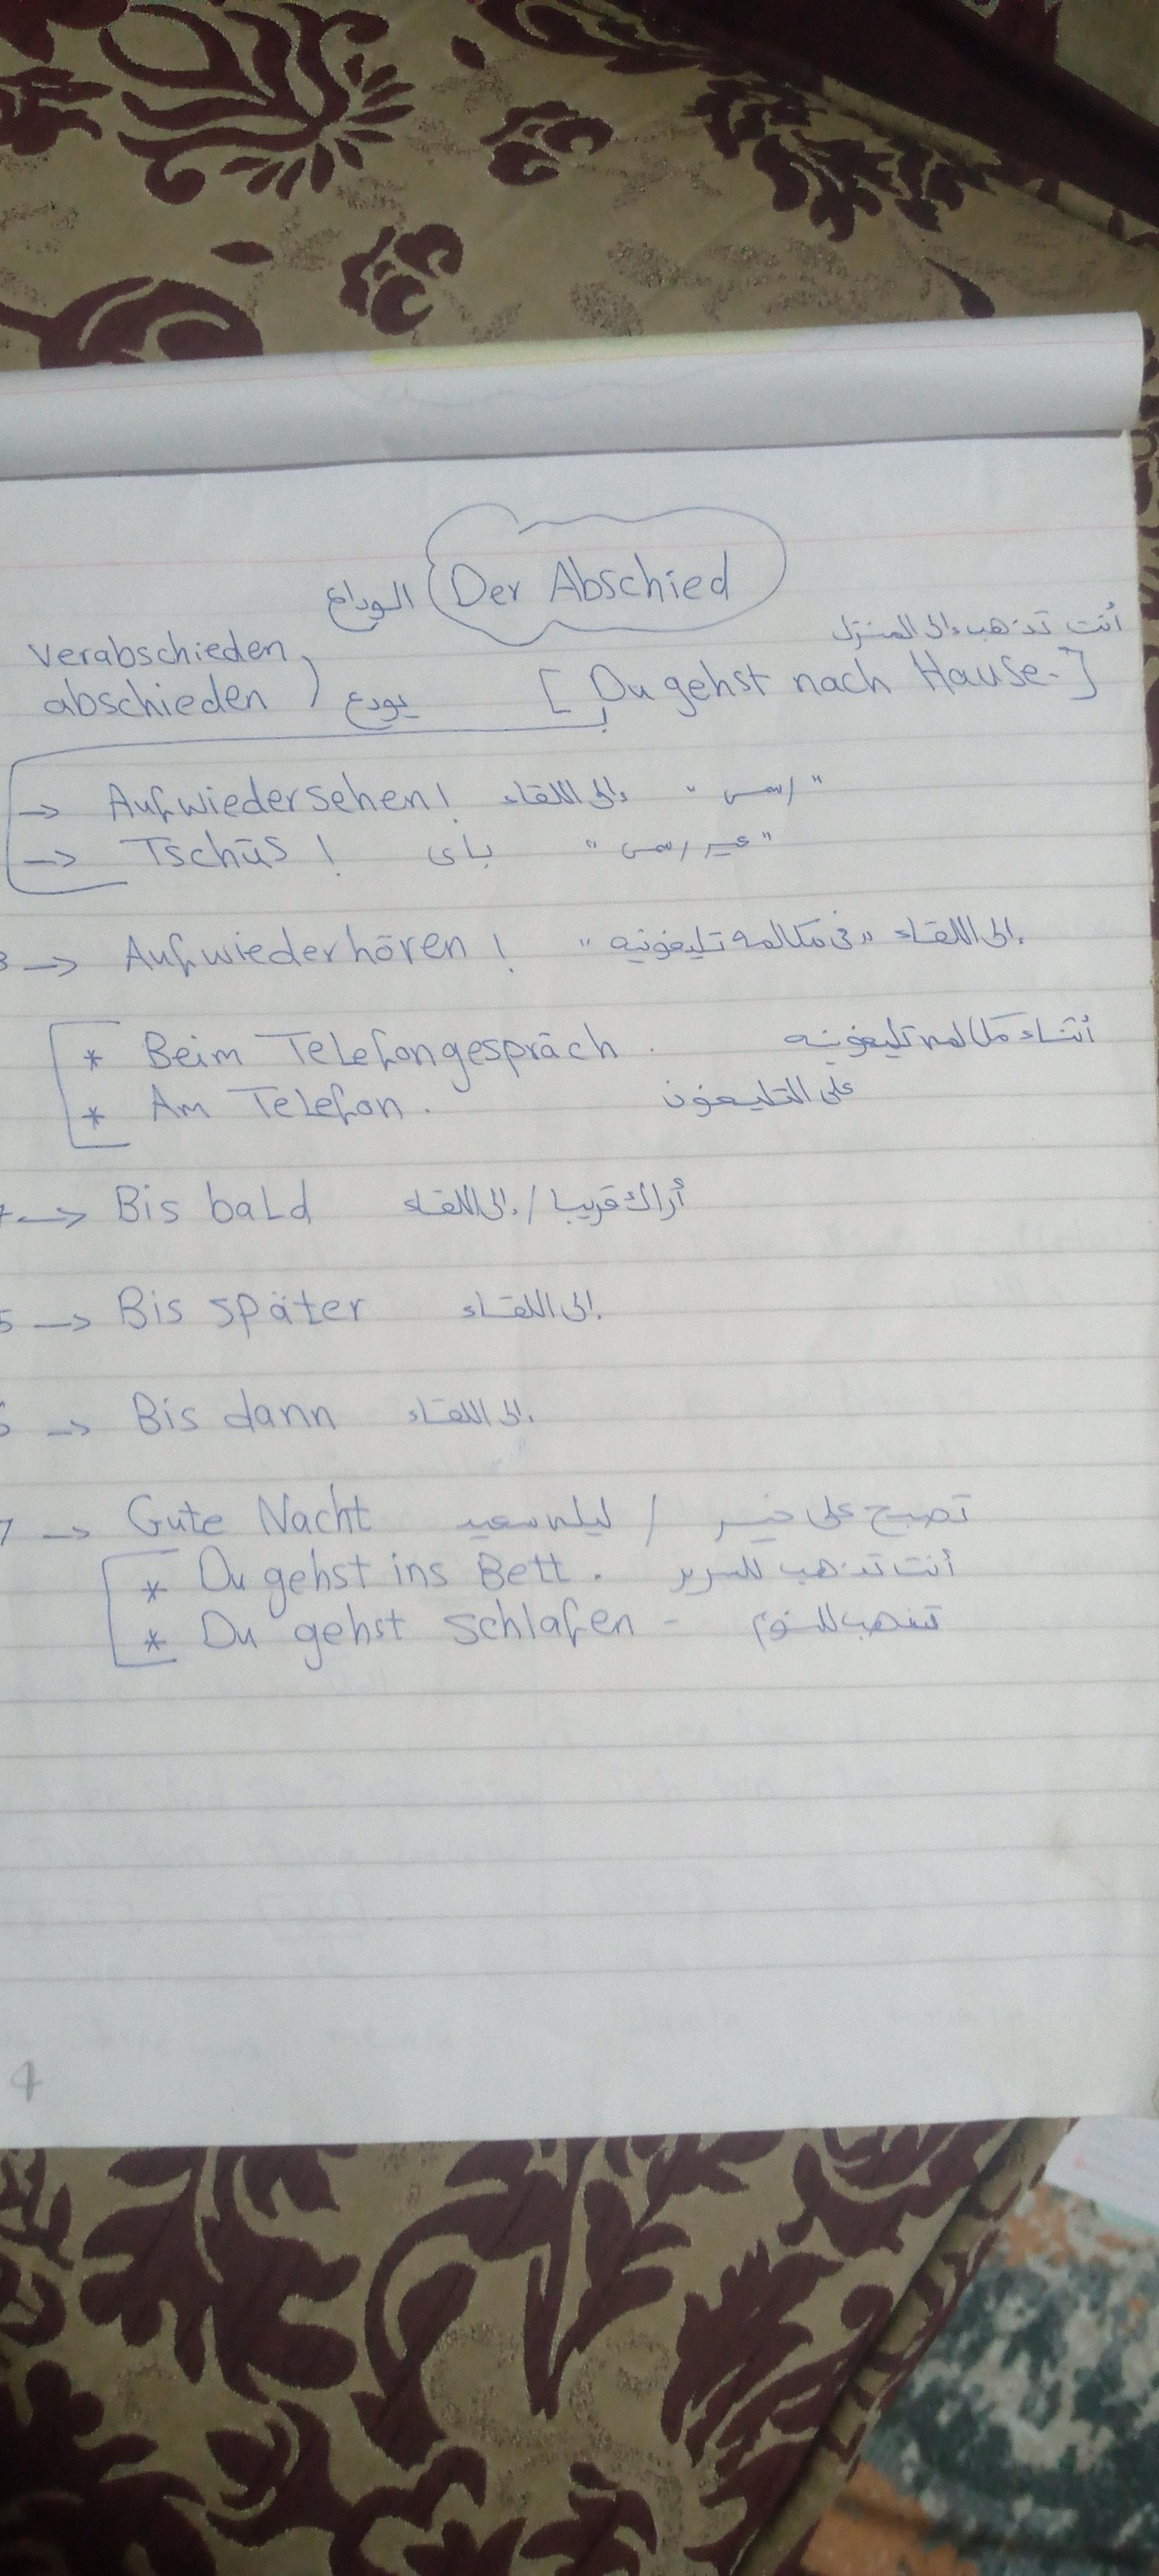 الوداع Der Abschied
أنت تذهب إلى المنزل
verabschieden
abschieden يودع [Du gehst nach Hause.]
→ Aufwiedersehen! إلى اللقاء "رسمى"
→ Tschüs! باى "غير رسمى"
3 → Aufwiederhören! إلى اللقاء "فى مكالمه تليفونيه"
* Beim Telefongespräch. أثناء مكالمه تليفونيه
* Am Telefon. على التليفون
→ Bis bald أراك قريبا / إلى اللقاء
5 → Bis später إلى اللقاء
6 → Bis dann إلى اللقاء
7 → Gute Nacht ليله سعيده / تصبح على خير
* Du gehst ins Bett. أنت تذهب للسرير
* Du gehst schlafen - تذهب للنوم
4